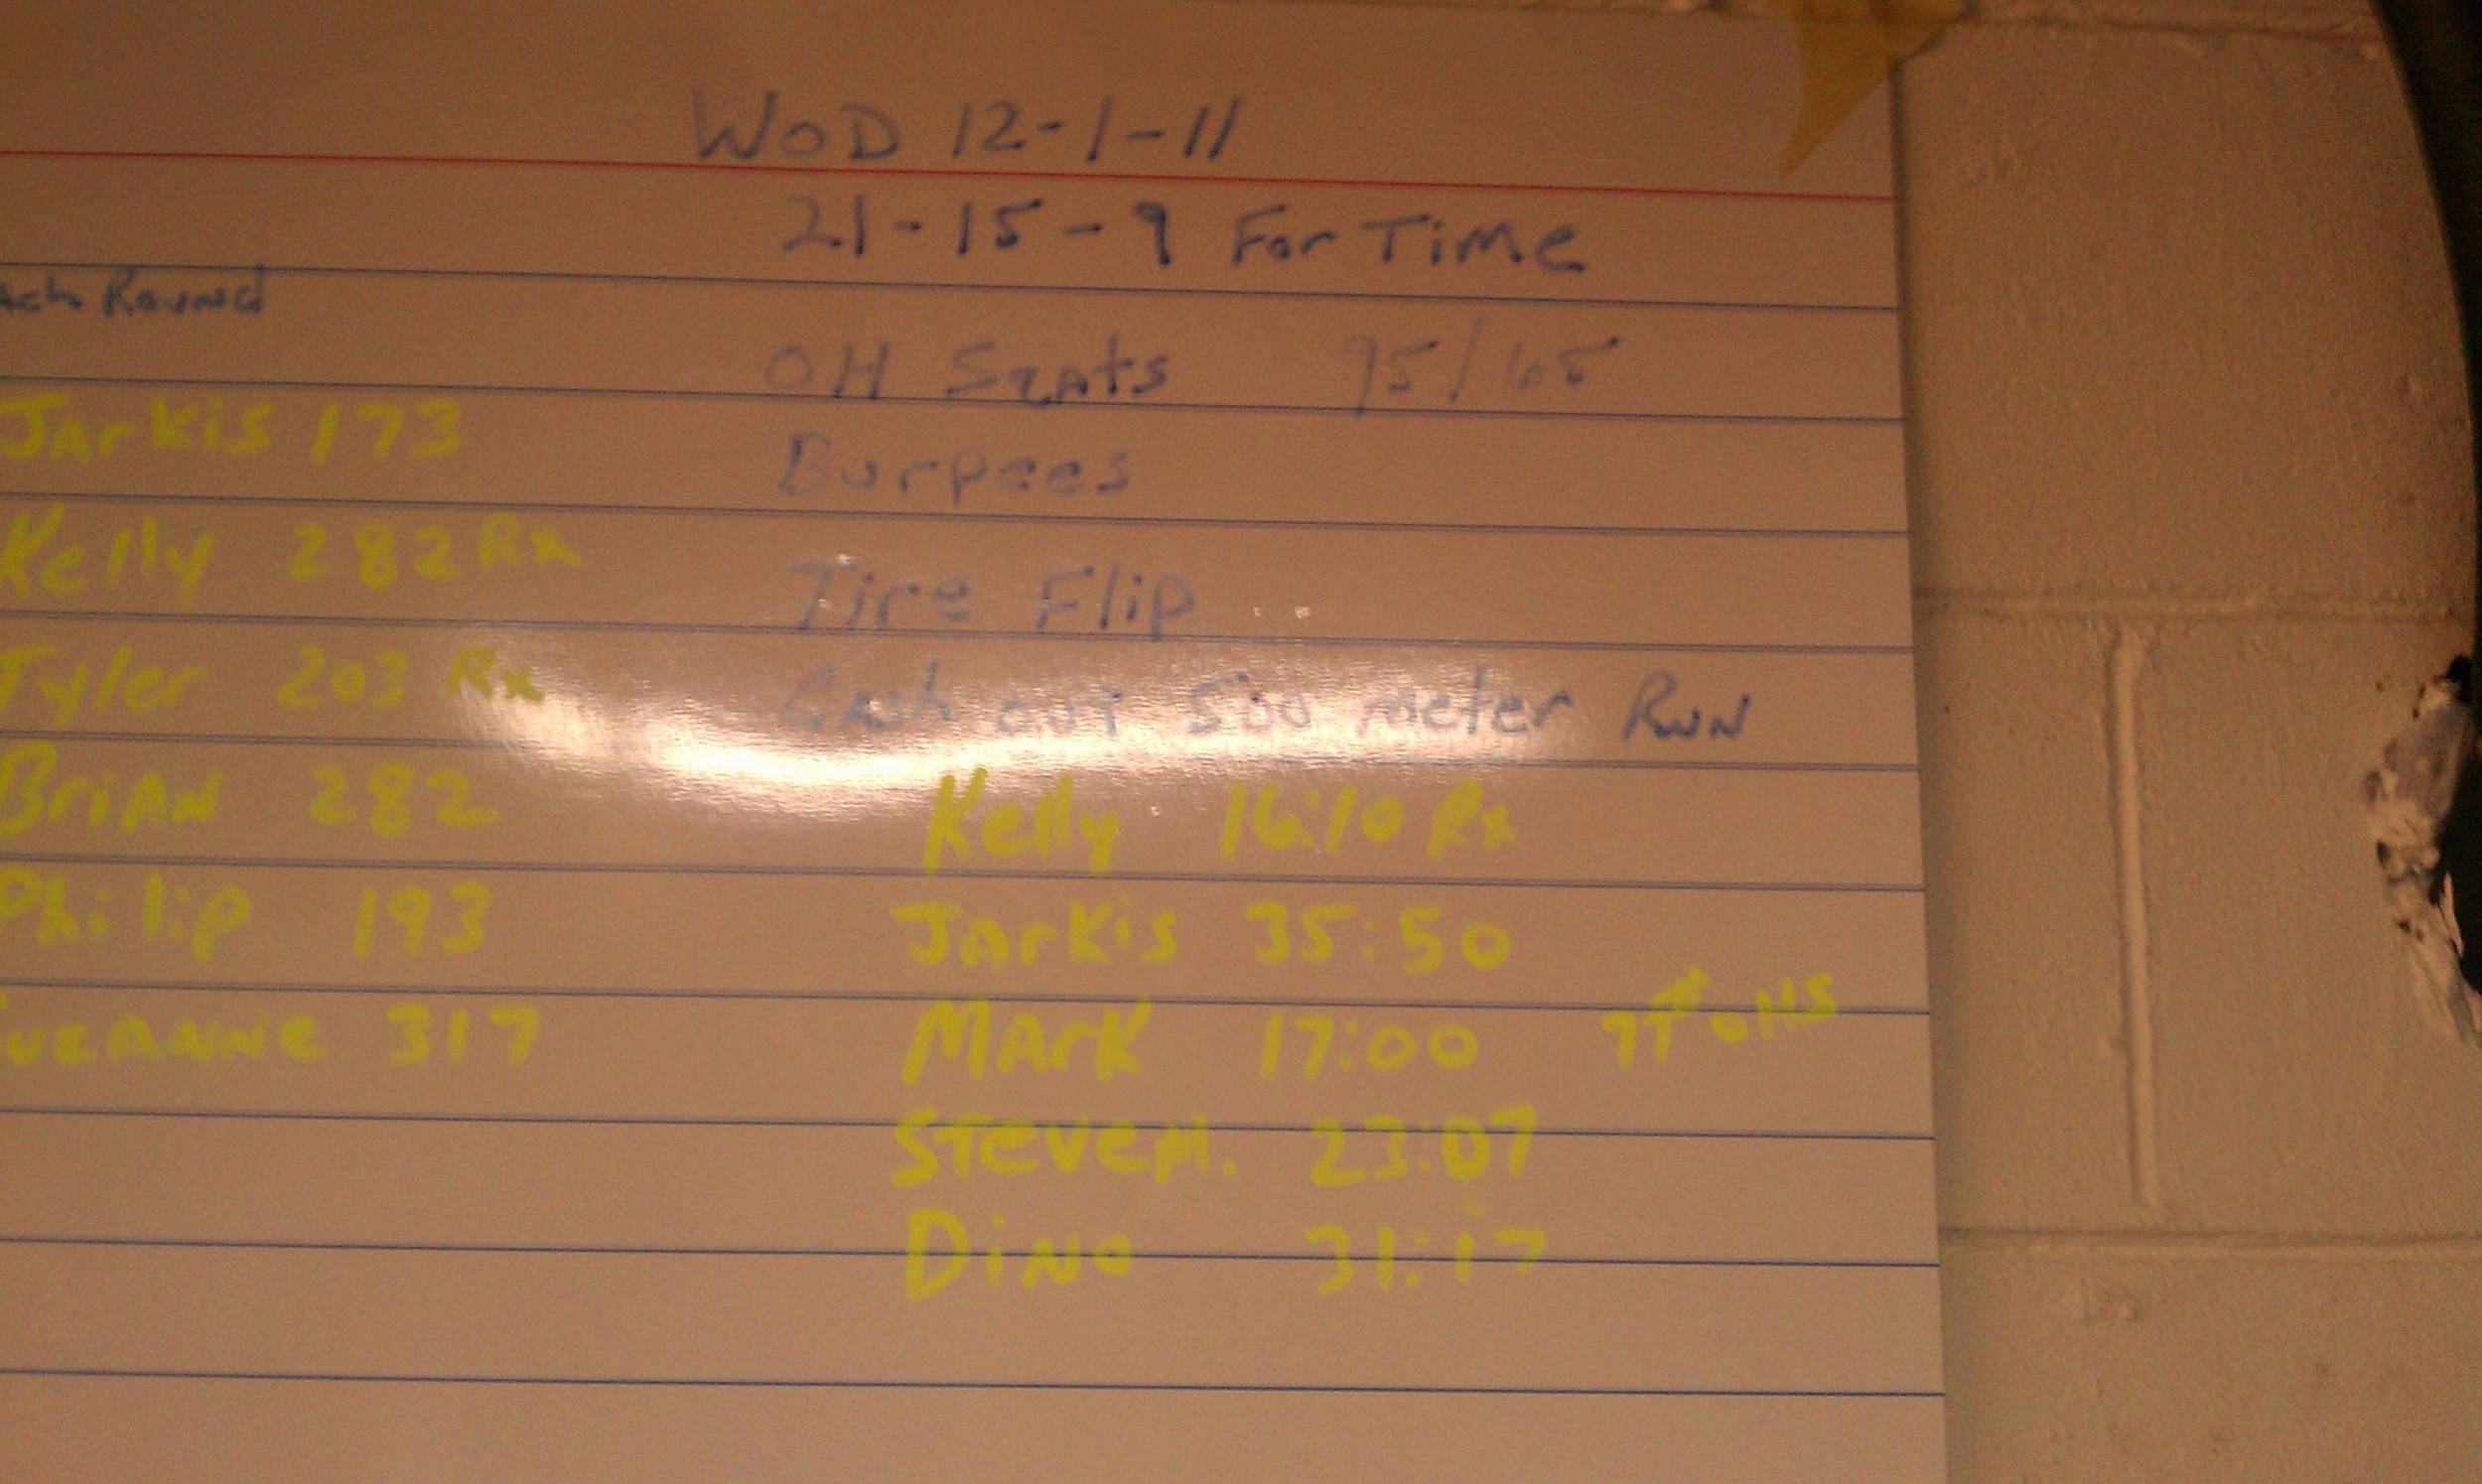 WOD 12-1-11
21-15-9 For Time
OH Sqats 95/65
Burpees
Tire Flip
Cash out 500 meter Run
Kelly 16:10 Rx
Jarkis 35:50
Mark 17:00 OHS
Steve M. 23:07
Dino 31:17
ach Round
Jarkis 173
Kelly 282 Rx
Tyler 203 Rx
Brian 282
Philip 193
uzanne 317